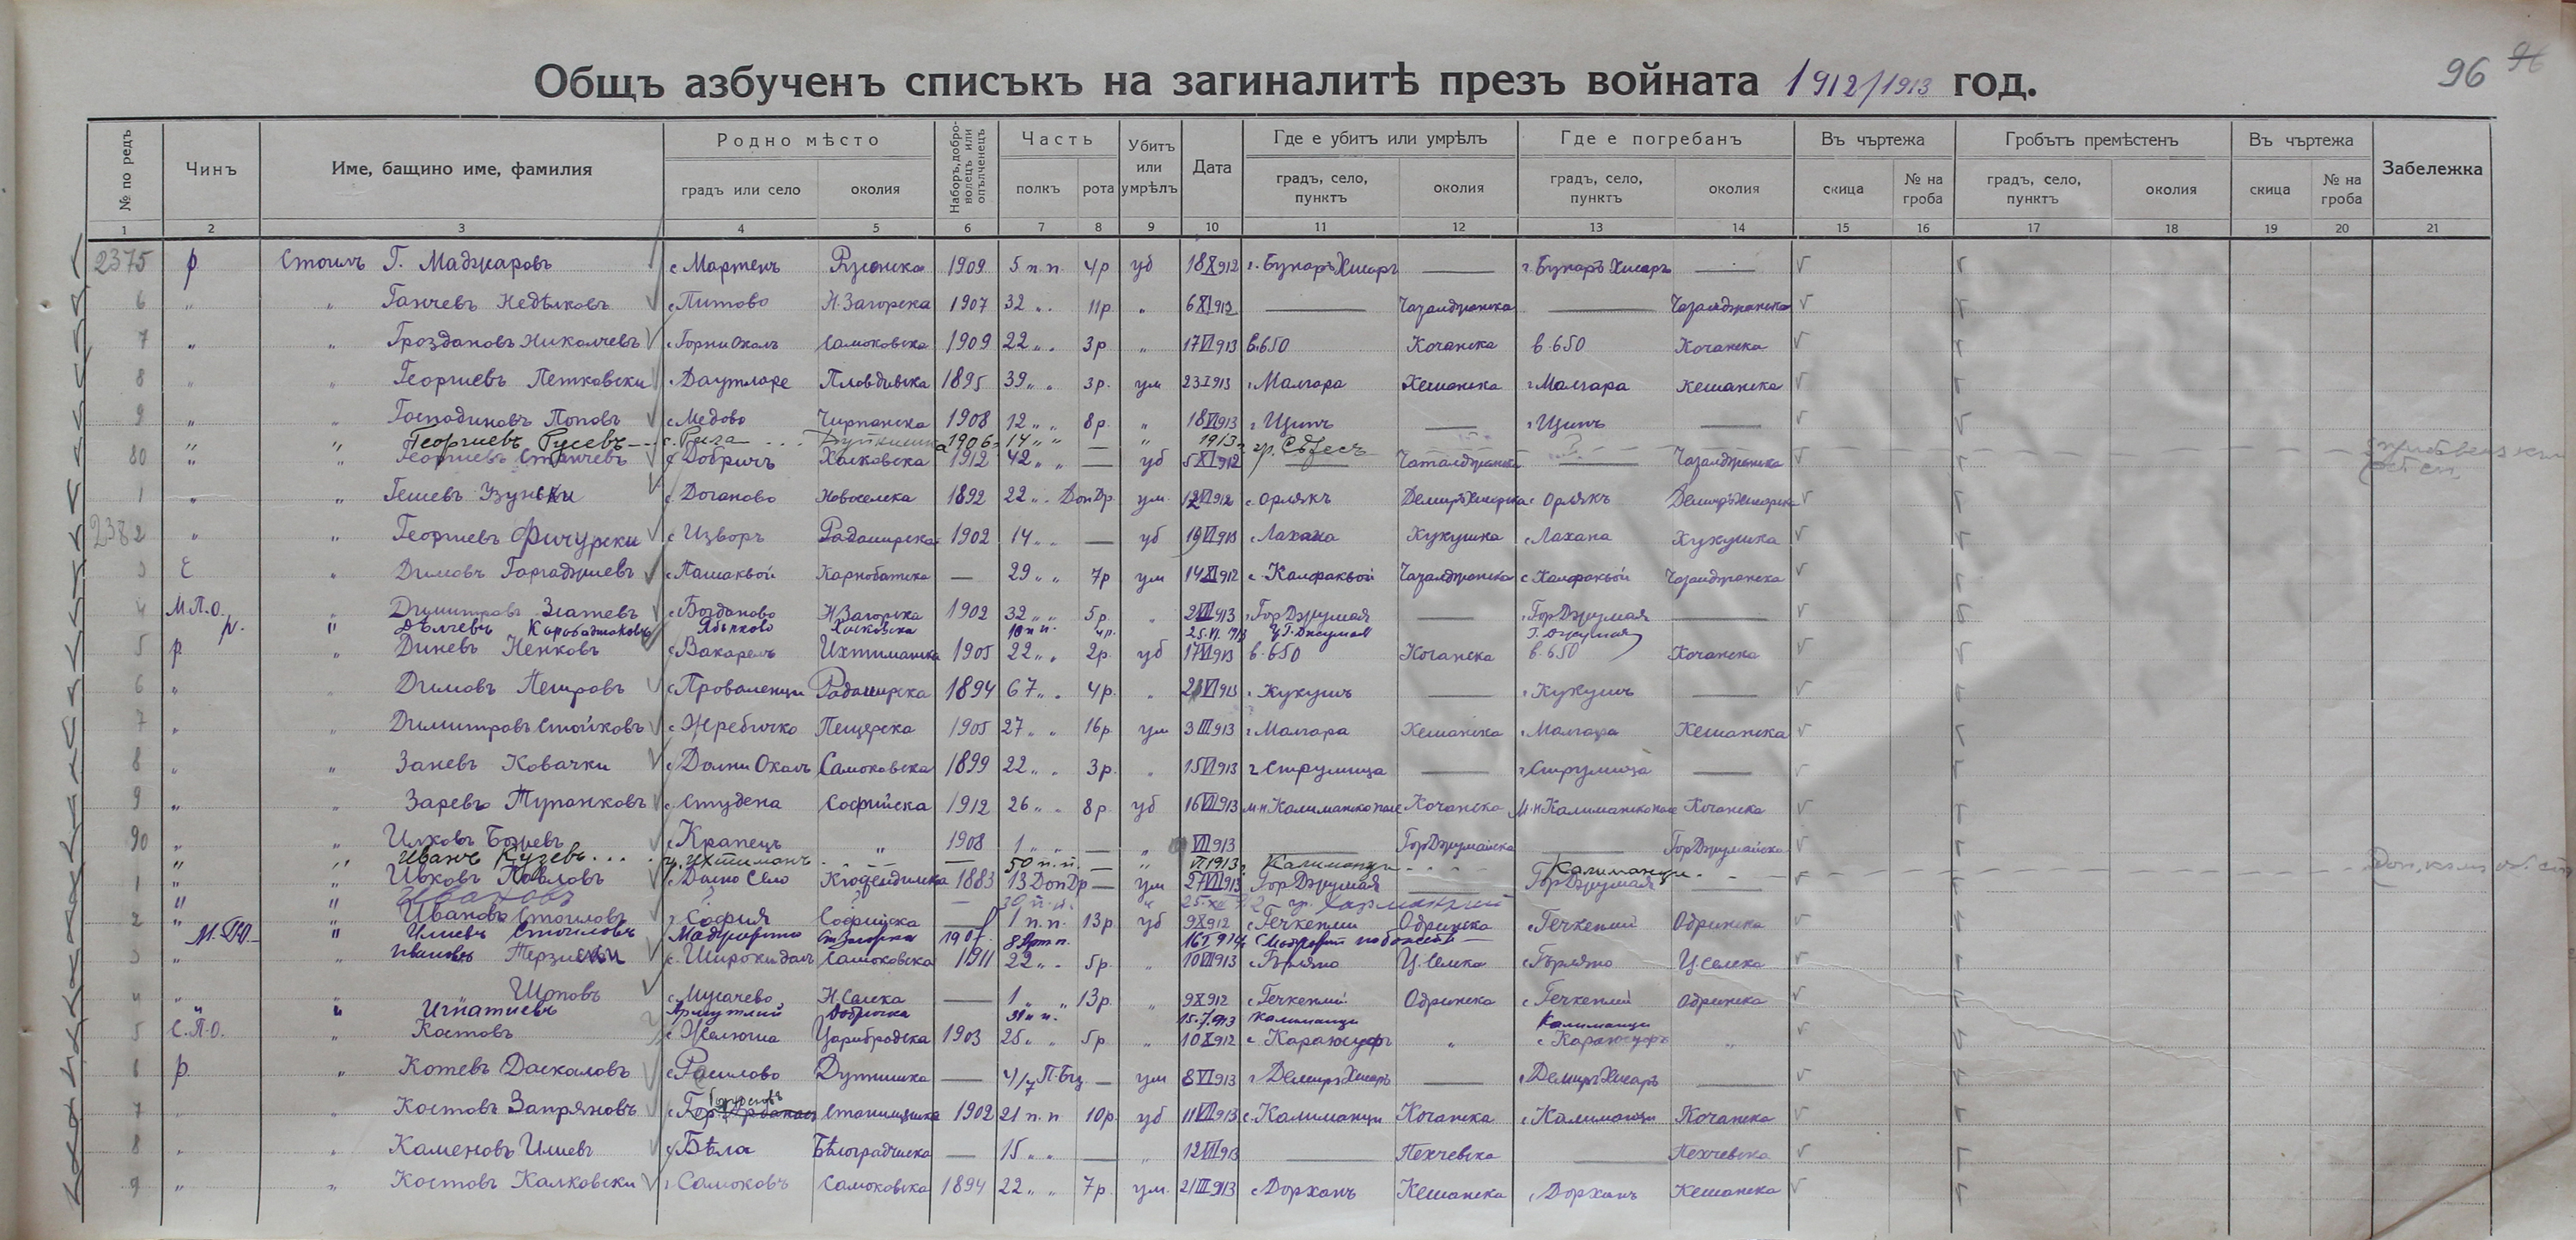 Общъ азбученъ списъкъ на загиналитѣ презъ войната 1912/1913 год.
96 96
№ по редъ Чинъ Име, бащино име, фамилия Родно мѣсто Наборъ, добро-волецъ или опълченецъ Часть Убитъ или умрѣлъ Дата Где е убитъ или умрѣлъ Где е погребанъ Въ чъртежа Гробътъ премѣстенъ Въ чъртежа Забележка
градъ или село околия полкъ рота градъ, село, пунктъ околия градъ, село, пунктъ околия скица № на гроба градъ, село, пунктъ околия скица № на гроба
1 2 3 4 5 6 7 8 9 10 11 12 13 14 15 16 17 18 19 20 21
2375 р Стоилъ Г. Маджаровъ с Мартенъ Русенска 1909 5 п. п. 4р уб 18 X 912 г. Бунаръ Хисаръ — г. Бунаръ Хисаръ —
6 „ „ Ганчевъ Недѣлковъ с Питово Н. Загорска 1907 32 „ „ 11р „ 6 XI 912 — Чаталджанска — Чаталджанска
7 „ „ Гроздановъ Николчевъ с Горни Околъ Самоковска 1909 22 „ „ 3р „ 17 VI 913 в. 650 Кочанска в. 650 Кочанска
8 „ „ Георгиевъ Петковски с Даутларе Пловдивска 1895 39 „ „ 3р. ум 23 I 913 г Малгара Кешанска г Малгара Кешанска
9 „ „ Господиновъ Поповъ с Медово Чирпанска 1908 12 „ „ 8р. „ 18 VI 913 г Щипъ — г Щипъ —
„ „ Георгиевъ Русевъ с. Рила 1906 14 „ „ — „ 1913 г. гр. Сѣресъ
80 „ „ Георгиевъ Станчевъ с Добричъ Хасковска 1912 42 „ „ — уб 5 XI 912 — Чаталджанска — Чаталджанска
1 „ „ Гешевъ Узунски с. Доганово Новоселска 1892 22 „ „ Доп Др. ум. 12 VI 912 с. Орлякъ Демиръ Хисарска с Орлякъ Демиръ Хисарска
2382 „ „ Георгиевъ Фичурски с Изворъ Радомирска 1902 14 „ „ — уб 19 VI 913 с Лахана Кукушка с Лахана Кукушка
3 Е „ Димовъ Гаргаджиевъ с Пашаквой Карнобатска — 29 „ „ 7р ум 14 XI 912 с. Калфаквой Чаталджанска с Калфаквой Чаталджанска
4 М. П. О. „ Димитровъ Златевъ с Богданово Н. Загорска 1902 32 „ „ 5р. „ 2 VII 913 г Гор Джумая — г Гор Джумая —
р. „ Дѣлчевъ Карабаджаковъ Ябълково Хасковска 10 п п. 4р. 25. VI. 913 Г. Джумая Г. Джумая
5 р „ Диневъ Ненковъ с Вакарелъ Ихтиманска 1905 22 „ „ 2р. уб 17 VI 913 в. 650 Кочанска в. 650 Кочанска
6 „ „ Димовъ Петровъ с Проваленци Радомирска 1894 67 „ „ 4р. „ 21 VI 913 г. Кукушъ — г Кукушъ —
7 „ „ Димитровъ Стойковъ с Жребичко Пещерска 1905 27 „ „ 16р ум 3 III 913 г Малгара Кешанска г Малгара Кешанска
8 „ „ Заневъ Ковачки с Долни Околъ Самоковска 1899 22 „ „ 3р. „ 15 VI 913 г Струмица — г Струмица —
9 „ „ Заревъ Тупанковъ с. Студена Софийска 1912 26 „ „ 8р. уб 16 VII 913 м-н Калиманско поле Кочанска М-н Калиманско поле Кочанска
90 „ „ Илковъ Божевъ с Крапецъ „ 1908 1 „ „ — „ VII 913 — Гор Джумайска — Гор Джумайска
„ „ Иванъ Кузевъ гр. Ихтиманъ — 50 п. п. — „ VI 1913 г. Калиманци Калиманци
1 „ „ Ивковъ Павловъ с. Долно Село Кюстендилска 1883 13 Доп Др — ум 27 VII 913 г Гор Джумая — Гор Джумая
„ „ Ивановъ 30 п. п. „ 25. XII 912 гр.
2 „ „ Ивановъ Стоиловъ г. София Софийска — 1 п. п. 13р уб 9 X 912 с Гечкенли Одринска с Гечкенли Одринска
М. П. О. „ Илиевъ Стоиловъ Маджарито Ст. Загорска 1907. 8 Арт п.
3 „ Ивановъ Терзийски с. Широки долъ Самоковска 1911 22 „ „ 5р. „ 10 VII 913 с Бърляно Ц. Селска с Бърляно Ц. Селска
4 „ „ Иповъ с Мусачево Н. Селска — 1 „ „ 13р. „ 9 X 912 с. Гечкенли Одринска с Гечкенли Одринска
„ „ Игнатиевъ Армутлий Добричка 31 п п. 15. 7. 913 Калиманци Калиманци
5 С. П. О. „ Костовъ с Желюша Царибродска 1903 25 „ „ 5р „ 10 X 912 с Караюсуфъ „ с Караюсуфъ „
6 р. „ Котевъ Даскаловъ с Расилово Дупнишка — 4/7 П. Бц. — ум 8 VI 913 г Демиръ Хисаръ — г Демиръ Хисаръ —
7 „ „ Костовъ Запряновъ с Гор Станимашка 1902 21 п. п 10р. уб 11 VII 913 с Калиманци Кочанска с Калиманци Кочанска
8 „ „ Каменовъ Илиевъ с Бѣла Бѣлоградчиска — 15 „ „ — „ 12 VII 913 — Пехчевска — Пехчевска
9 „ „ Костовъ Калковски г Самоковъ Самоковска 1894 22 „ „ 7р. ум. 21 III 913 с Дорханъ Кешанска с Дорханъ Кешанска